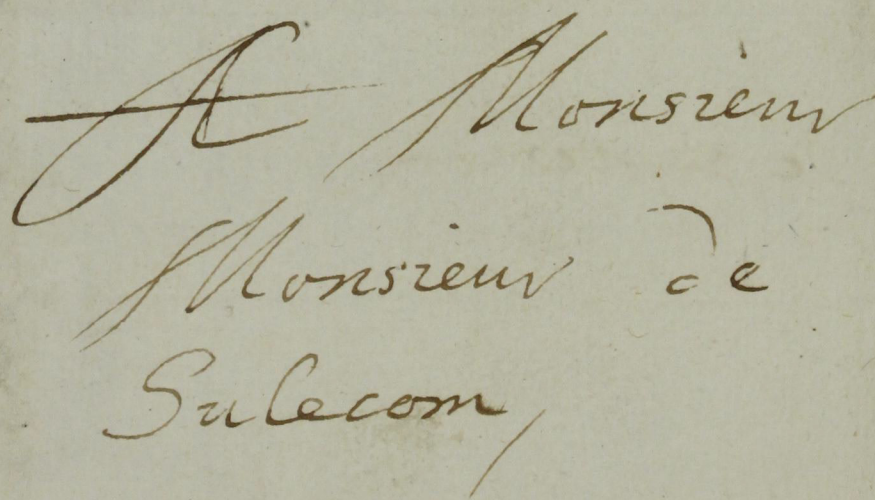 A Monsieur
Monsieur de
Sulecom,